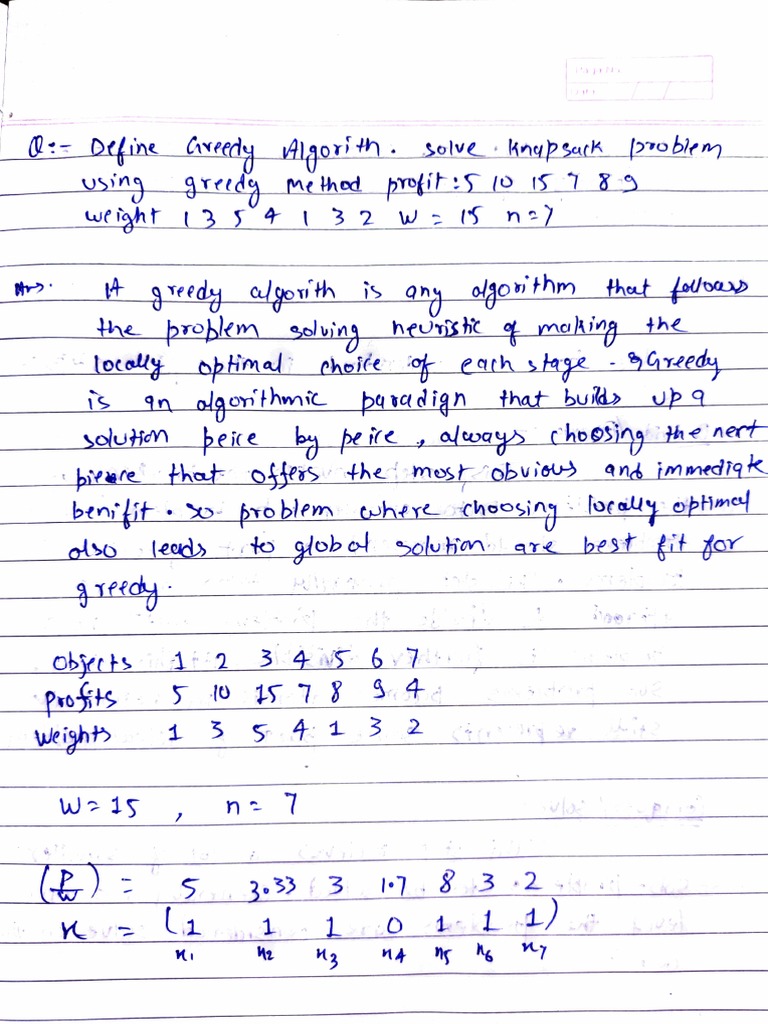 Q:- Define Greedy Algorith. solve knapsack problem
using greedy method profit: 5 10 15 7 8 9
weight 1 3 5 4 1 3 2 W = 15 n=7
Ans. A greedy algorith is any algorithm that follows
the problem solving heuristic of making the
locally optimal choice of each stage - Greedy
is an algorithmic paradign that builds up a
solution peice by peice, always choosing the next
pieace that offers the most obvious and immediate
benifit. so problem where choosing locally optimal
also leads to global solution are best fit for
greedy.
Objects 1 2 3 4 5 6 7
Profits 5 10 15 7 8 9 4
Weights 1 3 5 4 1 3 2
W = 15 , n = 7
(P/W) = 5 3.33 3 1.7 8 3 2
x = (1 1 1 0 1 1 1)
x1 x2 x3 x4 x5 x6 x7